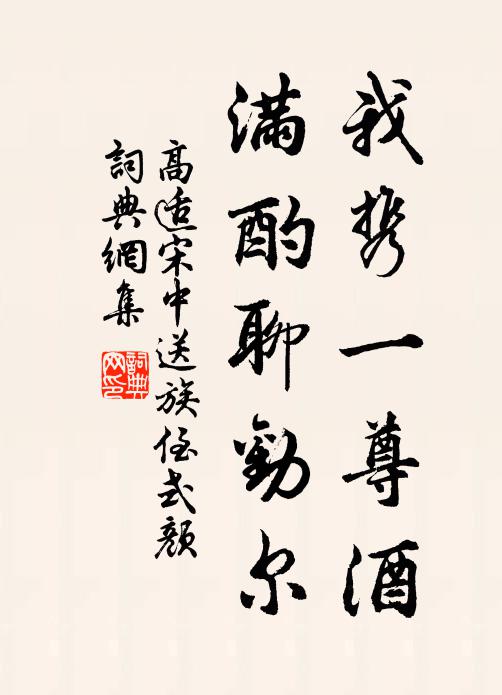 我携一尊酒
满酌聊勸尔
高适宋中送族侄式颜
詞典網集
詞典
网印